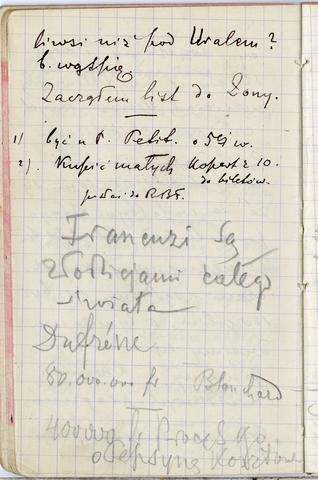 niż pod Uralem?
b. wątpię.
Zacząłem list do Żony.
1) być u P. Petit. o 5½ w.
2). Kupić małych kopert z 10.
do biletów.
posłać do RBF.
Francuzi są
złodziejami całego
świata
Dufrène
50.000.000 fr Blanchard
400000 fr